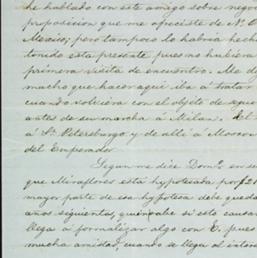 he hablado con este amigo sobre nego
proposicion que me ofreciste de N. O
Mexico; pero tampoco lo habria hech
tenido esta presente pues no hubiera
primera visita de encuentro. Me d
mucho que hacer aqui iba a tratar
cuando volviera con el objeto de
antes de su marcha á Milan. El
á Sn. Petersburgo y de allí á Moscow
del Emperador
Segun me dice Domo. en su
que Miraflores está hypotecaba por $2
mayor parte de esa hypoteca debe queda
años siguientes, quien sabe si esto causa
llega á formalizar algo con E. pues
mucha amistad, cuando se llega al inten